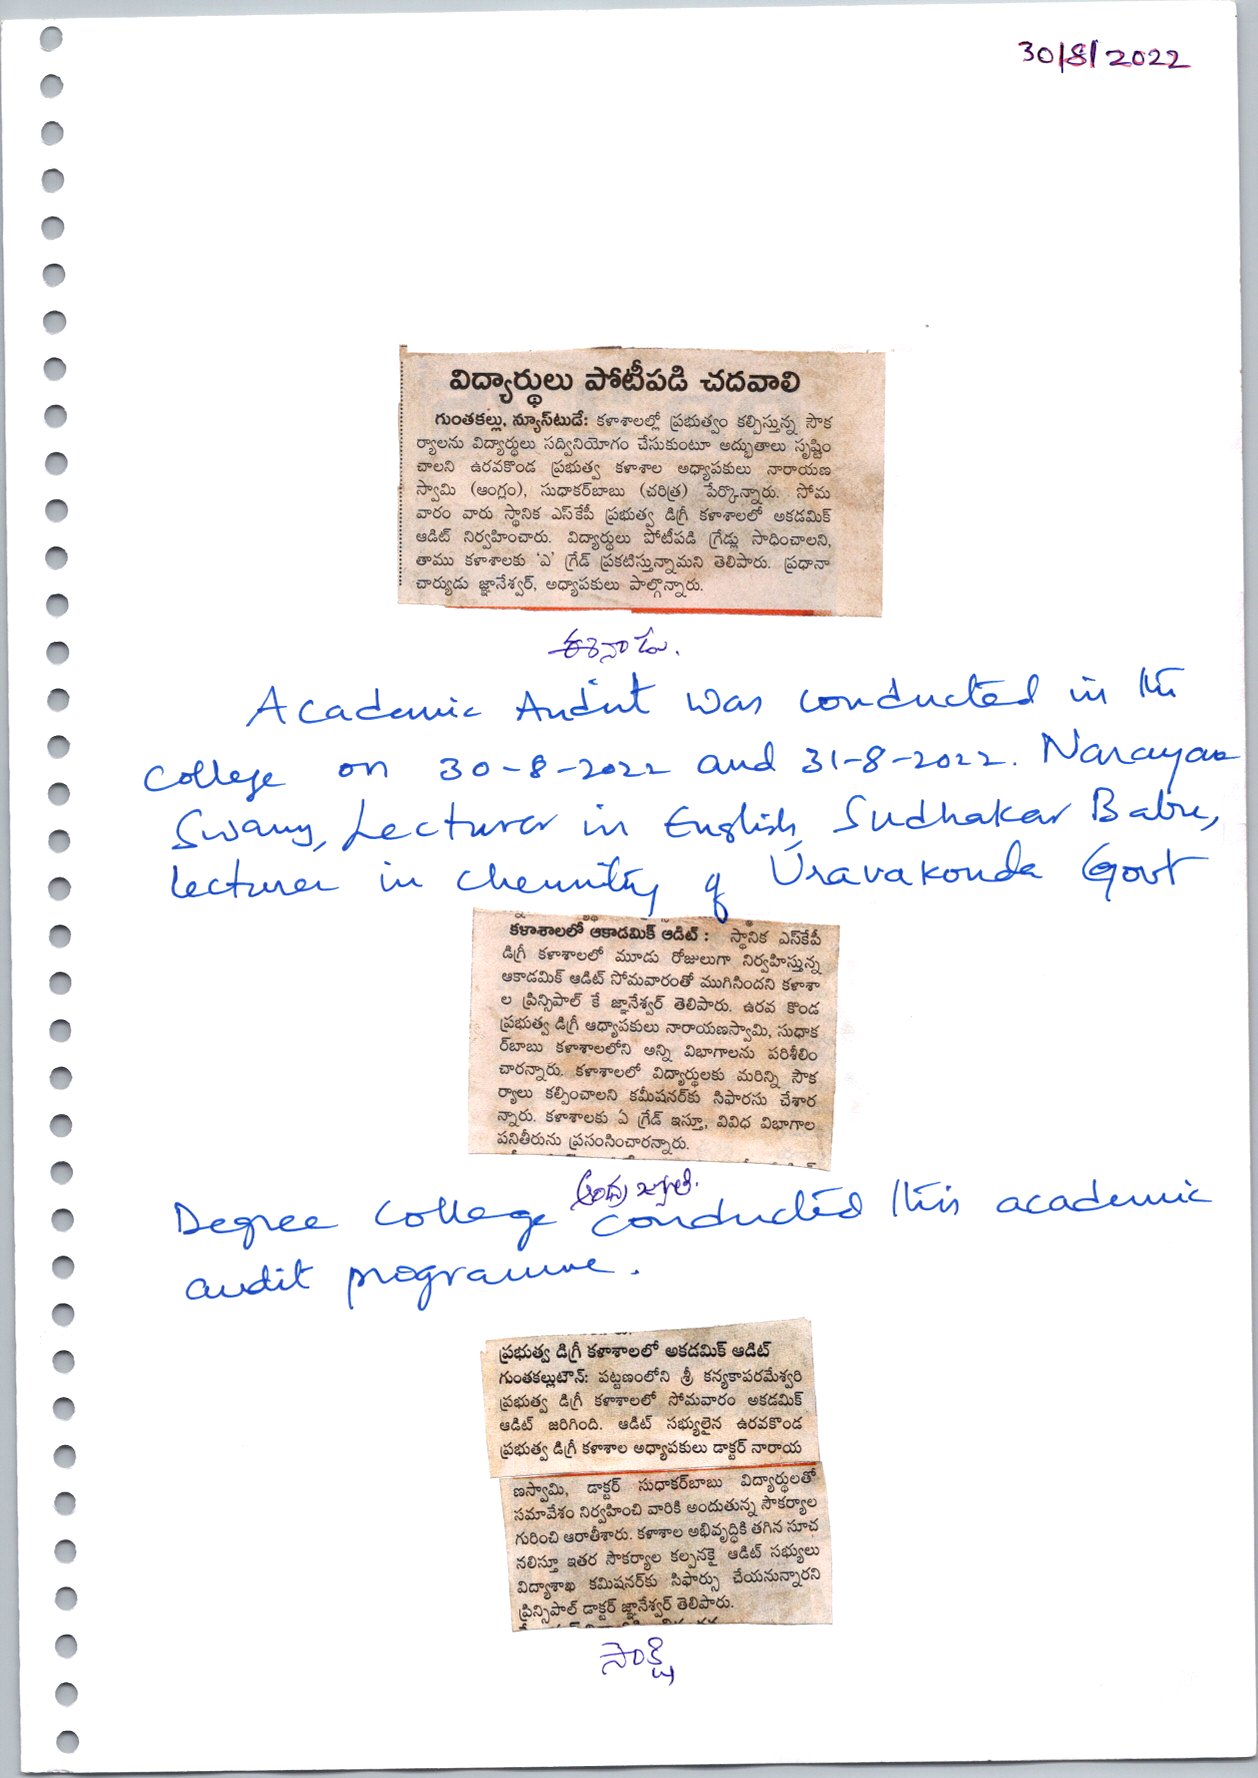 30/8/2022
విద్యార్థులు పోటీపడి చదవాలి
గుంతకల్లు, న్యూస్‌టుడే: కళాశాలల్లో ప్రభుత్వం కల్పిస్తున్న సౌక
ర్యాలను విద్యార్థులు సద్వినియోగం చేసుకుంటూ అద్భుతాలు సృష్టిం
చాలని ఉరవకొండ ప్రభుత్వ కళాశాల అధ్యాపకులు నారాయణ
స్వామి (ఆంగ్లం), సుధాకర్‌బాబు (చరిత్ర) పేర్కొన్నారు. సోమ
వారం వారు స్థానిక ఎస్‌కేపీ ప్రభుత్వ డిగ్రీ కళాశాలలో అకడమిక్
ఆడిట్ నిర్వహించారు. విద్యార్థులు పోటీపడి గ్రేడ్లు సాధించాలని,
తాము కళాశాలకు 'ఎ' గ్రేడ్ ప్రకటిస్తున్నామని తెలిపారు. ప్రధానా
చార్యుడు జ్ఞానేశ్వర్, అధ్యాపకులు పాల్గొన్నారు.
ఈనాడు.
Academic Audit was conducted in the
college on 30-8-2022 and 31-8-2022. Narayana
Swamy, Lecturer in English, Sudhakar Babu,
lecturer in chemistry of Uravakonda Govt
కళాశాలలో ఆకాడమిక్ ఆడిట్ : స్థానిక ఎస్‌కేపీ
డిగ్రీ కళాశాలలో మూడు రోజులుగా నిర్వహిస్తున్న
ఆకాడమిక్ ఆడిట్ సోమవారంతో ముగిసిందని కళాశా
ల ప్రిన్సిపాల్ కే జ్ఞానేశ్వర్ తెలిపారు. ఉరవ కొండ
ప్రభుత్వ డిగ్రీ ఆధ్యాపకులు నారాయణస్వామి, సుధాక
ర్‌బాబు కళాశాలలోని అన్ని విభాగాలను పరిశీలిం
చారన్నారు. కళాశాలలో విద్యార్థులకు మరిన్ని సౌక
ర్యాలు కల్పించాలని కమీషనర్‌కు సిఫారసు చేశార
న్నారు. కళాశాలకు ఏ గ్రేడ్ ఇస్తూ, వివిధ విభాగాల
పనితీరును ప్రసంసించారన్నారు.
ఆంధ్ర జ్యోతి.
Degree College conducted this academic
audit programme.
ప్రభుత్వ డిగ్రీ కళాశాలలో అకడమిక్ ఆడిట్
గుంతకల్లుటౌన్: పట్టణంలోని శ్రీ కన్యకాపరమేశ్వరి
ప్రభుత్వ డిగ్రీ కళాశాలలో సోమవారం అకడమిక్
ఆడిట్ జరిగింది. ఆడిట్ సభ్యులైన ఉరవకొండ
ప్రభుత్వ డిగ్రీ కళాశాల అధ్యాపకులు డాక్టర్ నారాయ
ణస్వామి, డాక్టర్ సుధాకర్‌బాబు విద్యార్థులతో
సమావేశం నిర్వహించి వారికి అందుతున్న సౌకర్యాల
గురించి ఆరాతీశారు. కళాశాల అభివృద్ధికి తగిన సూచ
నలిస్తూ ఇతర సౌకర్యాల కల్పనకై ఆడిట్ సభ్యులు
విద్యాశాఖ కమిషనర్‌కు సిఫార్సు చేయనున్నారని
ప్రిన్సిపాల్ డాక్టర్ జ్ఞానేశ్వర్ తెలిపారు.
సాక్షి